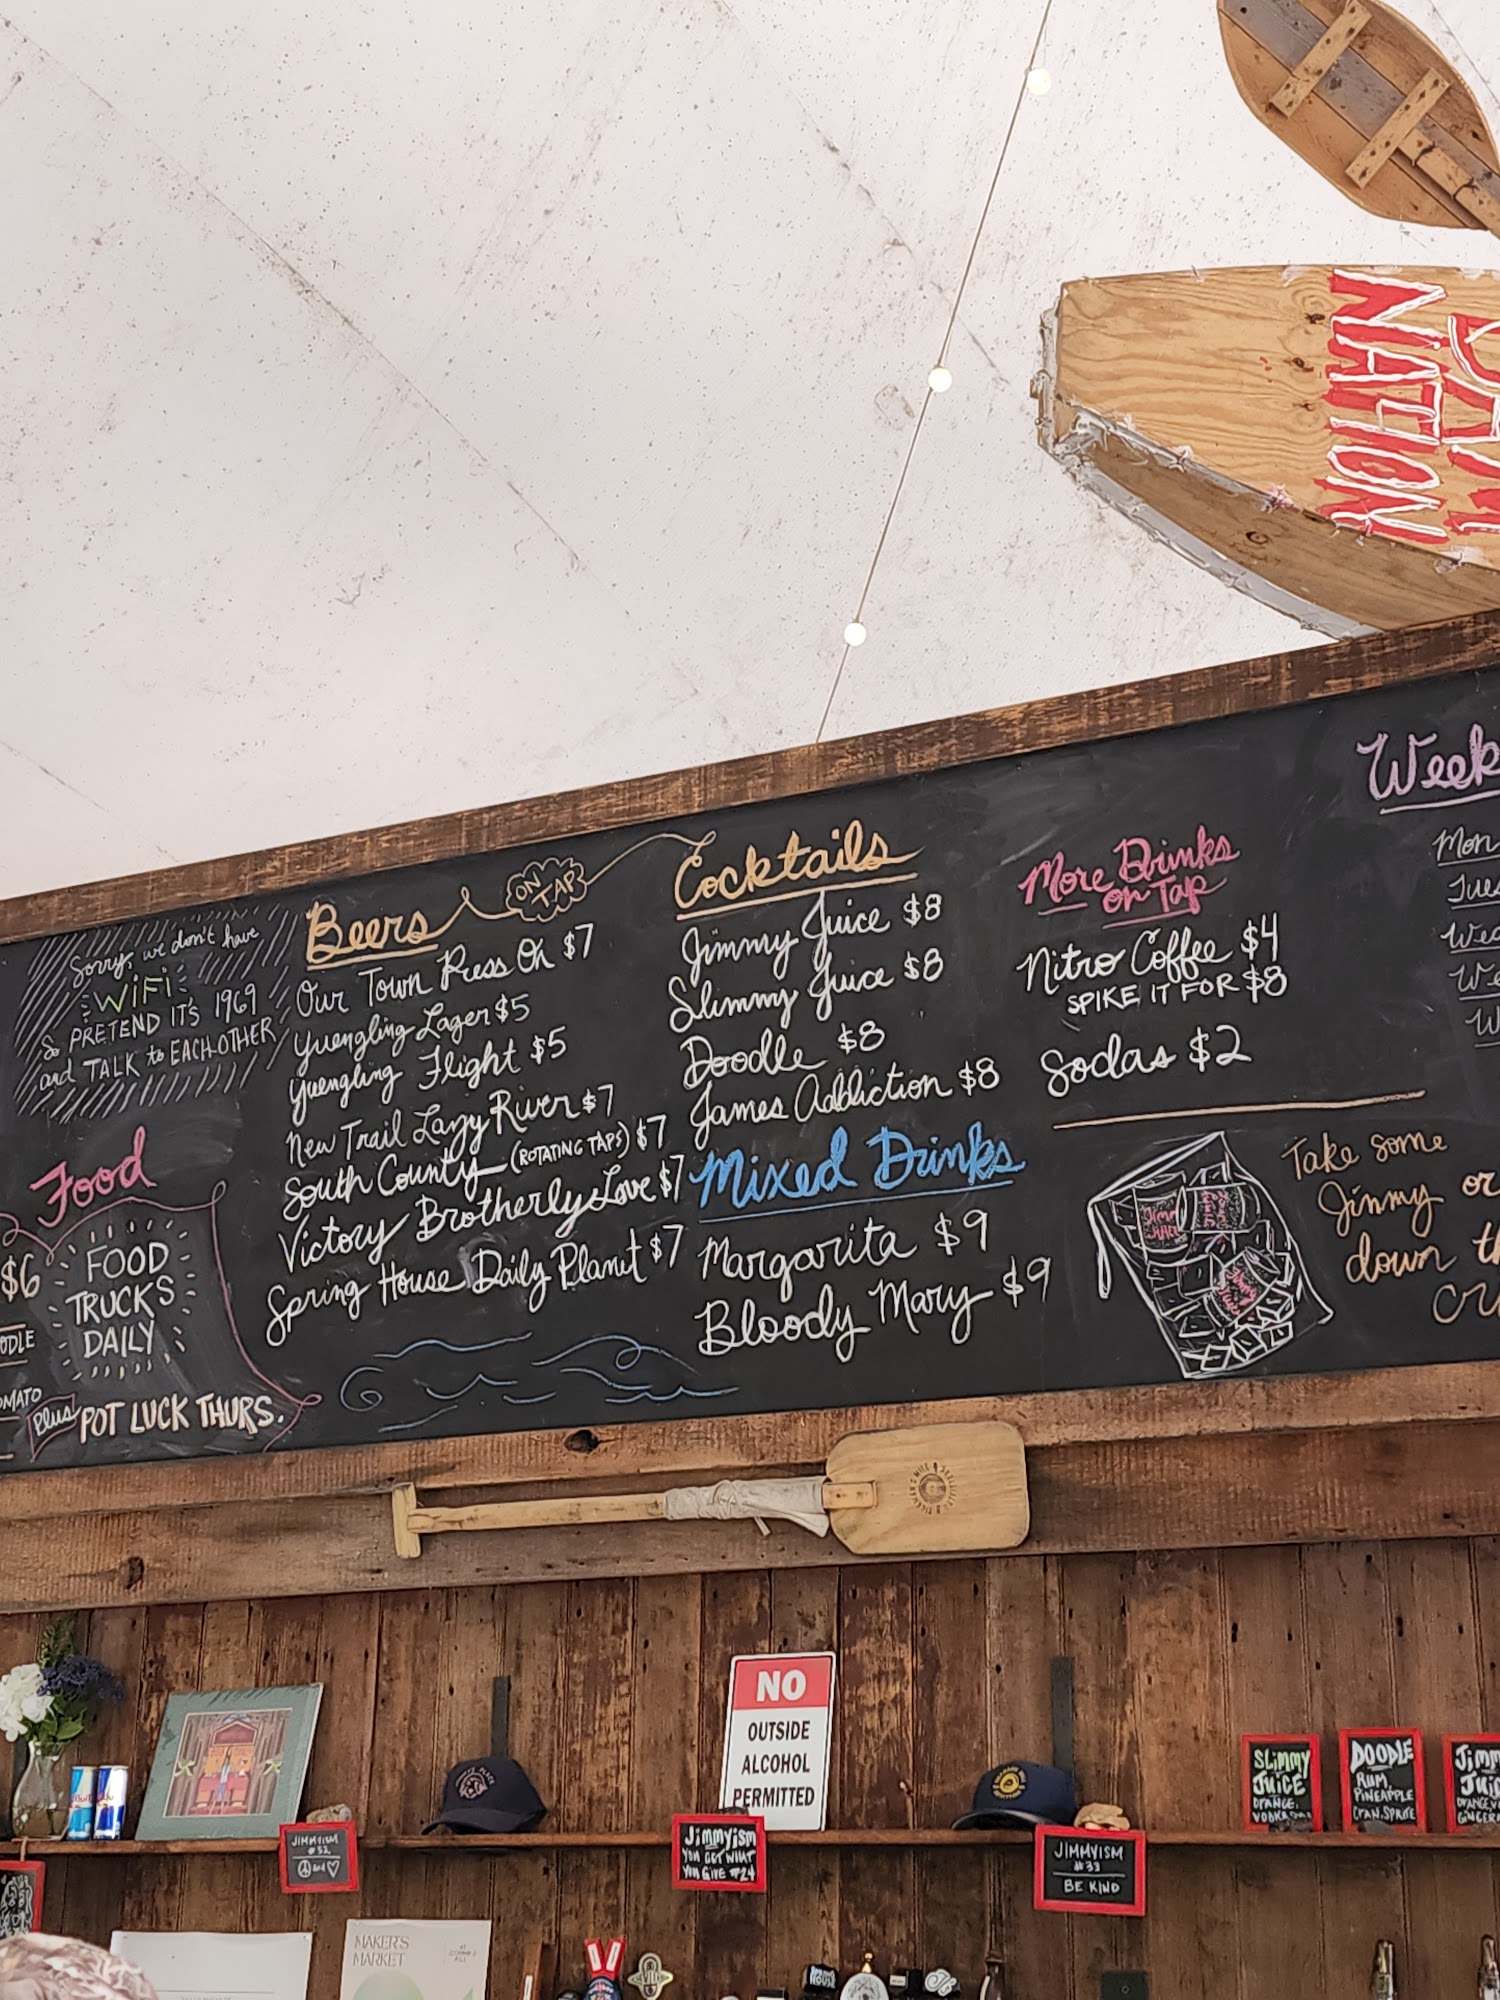 NATION
Sorry, we don't have
WiFi
So PRETEND IT'S 1969
and TALK to EACHOTHER
Food
$6
FOOD
TRUCKS
DAILY
Plus POT LUCK THURS.
Beers
ON TAP
Our Town Press On $7
Yuengling Lager $5
Yuengling Flight $5
New Trail Lazy River $7
South County (ROTATING TAPS) $7
Victory Brotherly Love $7
Spring House Daily Planet $7
Cocktails
Jimmy Juice $8
Slimmy Juice $8
Doodle $8
James Addiction $8
Mixed Drinks
Margarita $9
Bloody Mary $9
More Drinks
on Tap
Nitro Coffee $4
SPIKE IT FOR $8
Sodas $2
Take some
Jimmy or
down
Week
Mon
Tues
NO
OUTSIDE
ALCOHOL
PERMITTED
SLiMMY
JUICE
ORANGE,
VODKA
DOODLE
RUM,
PINEAPPLE
CRAN, SPRITE
JIMMYISM
#32
and
Jimmyism
YOU GET WHAT
YOU GIVE #24
JIMMYISM
#33
BE KIND
MAKER'S
MARKET